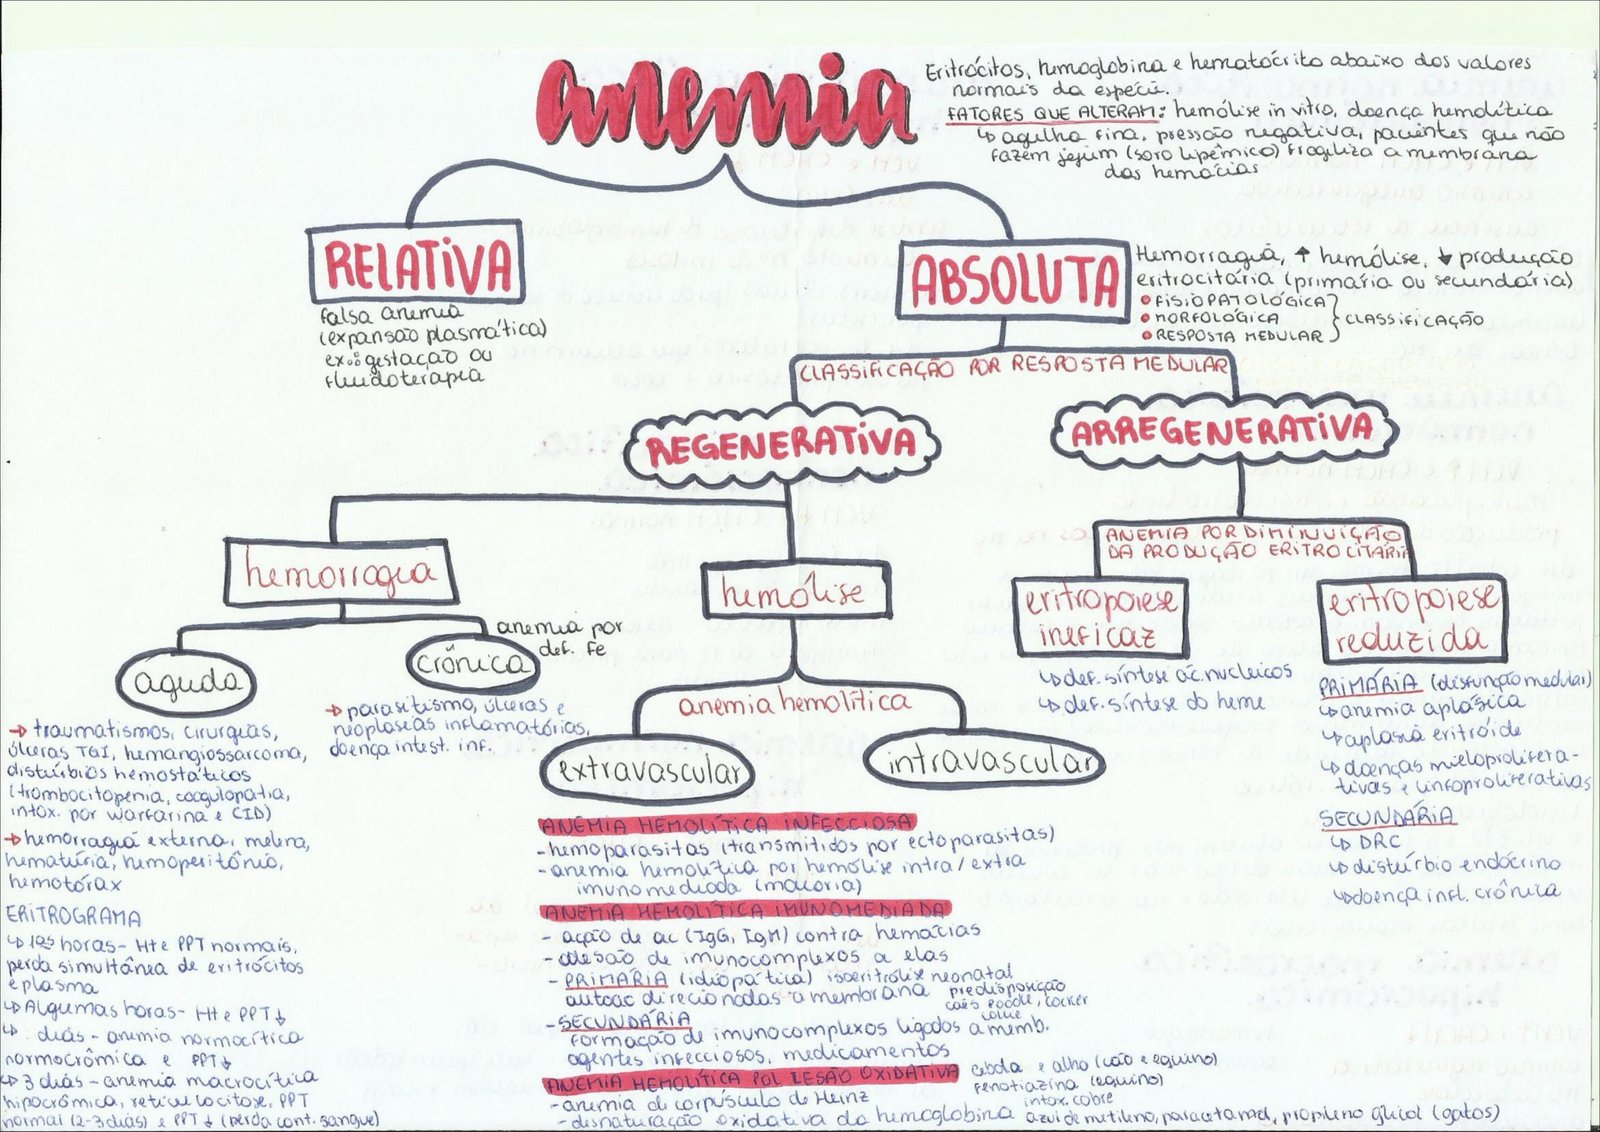 anemia
Eritrócitos, hemoglobina e hematócrito abaixo dos valores
normais da espécie.
FATORES QUE ALTERAM: hemólise in vitro, doença hemolítica
↳ agulha fina, pressão negativa, pacientes que não
fazem jejum (soro lipêmico) fragiliza a membrana
das hemácias
RELATIVA
falsa anemia
(expansão plasmática)
ex: gestação ou
fluidoterapia
ABSOLUTA
Hemorragia, ↑ hemólise, ↓ produção
eritrocitária (primária ou secundária)
• FISIOPATOLÓGICA
• MORFOLÓGICA } CLASSIFICAÇÃO
• RESPOSTA MEDULAR
CLASSIFICAÇÃO POR RESPOSTA MEDULAR
REGENERATIVA
ARREGENERATIVA
hemorragia
aguda
→ traumatismos, cirurgias,
úlceras TGI, hemangiossarcoma,
distúrbios hemostáticos
(trombocitopenia, coagulopatia,
intox. por warfarina e CID)
→ hemorragia externa, melena,
hematúria, hemoperitônio,
hemotórax
ERITROGRAMA
↳ 1as horas - Ht e PPT normais,
perda simultânea de eritrócitos
e plasma
↳ Algumas horas - Ht e PPT ↓
↳ . dias - anemia normocítica
normocrômica e PPT ↓
↳ 3 dias - anemia macrocítica
hipocrômica, reticulocitose, PPT
normal (2-3 dias) e PPT ↓ (perda cont. sangue)
crônica
anemia por
def. Fe
→ parasitismo, úlceras e
neoplasias inflamatórias,
doença intest. inf.
hemólise
anemia hemolítica
extravascular
intravascular
ANEMIA HEMOLÍTICA INFECCIOSA
- hemoparasitas (transmitidos por ectoparasitas)
- anemia hemolítica por hemólise intra/extra
imunomediada (maioria)
ANEMIA HEMOLÍTICA IMUNOMEDIADA
- ação de ac (IgG, IgM) contra hemácias
- adesão de imunocomplexos a elas
- PRIMÁRIA (idiopática) isoeritrólise neonatal
autoac direcionados a membrana
predisposição
cães poodle, cocker
collie
- SECUNDÁRIA
formação de imunocomplexos ligados a memb.
agentes infecciosos, medicamentos
ANEMIA HEMOLÍTICA POR LESÃO OXIDATIVA
- anemia de corpúsculo de Heinz
- desnaturação oxidativa da hemoglobina
cebola e alho (cão e equino)
fenotiazina (equino)
intox. cobre
azul de metileno, paracetamol, propileno glicol (gatos)
ANEMIA POR DIMINUIÇÃO
DA PRODUÇÃO ERITROCITÁRIA
eritropoiese
ineficaz
↳ def. síntese ác. nucleicos
↳ def. síntese do heme
eritropoiese
reduzida
PRIMÁRIA (disfunção medular)
↳ anemia aplásica
↳ aplasia eritróide
↳ doenças mieloprolifera-
tivas e linfoproliferativas
SECUNDÁRIA
↳ DRC
↳ distúrbio endócrino
↳ doença infl. crônica